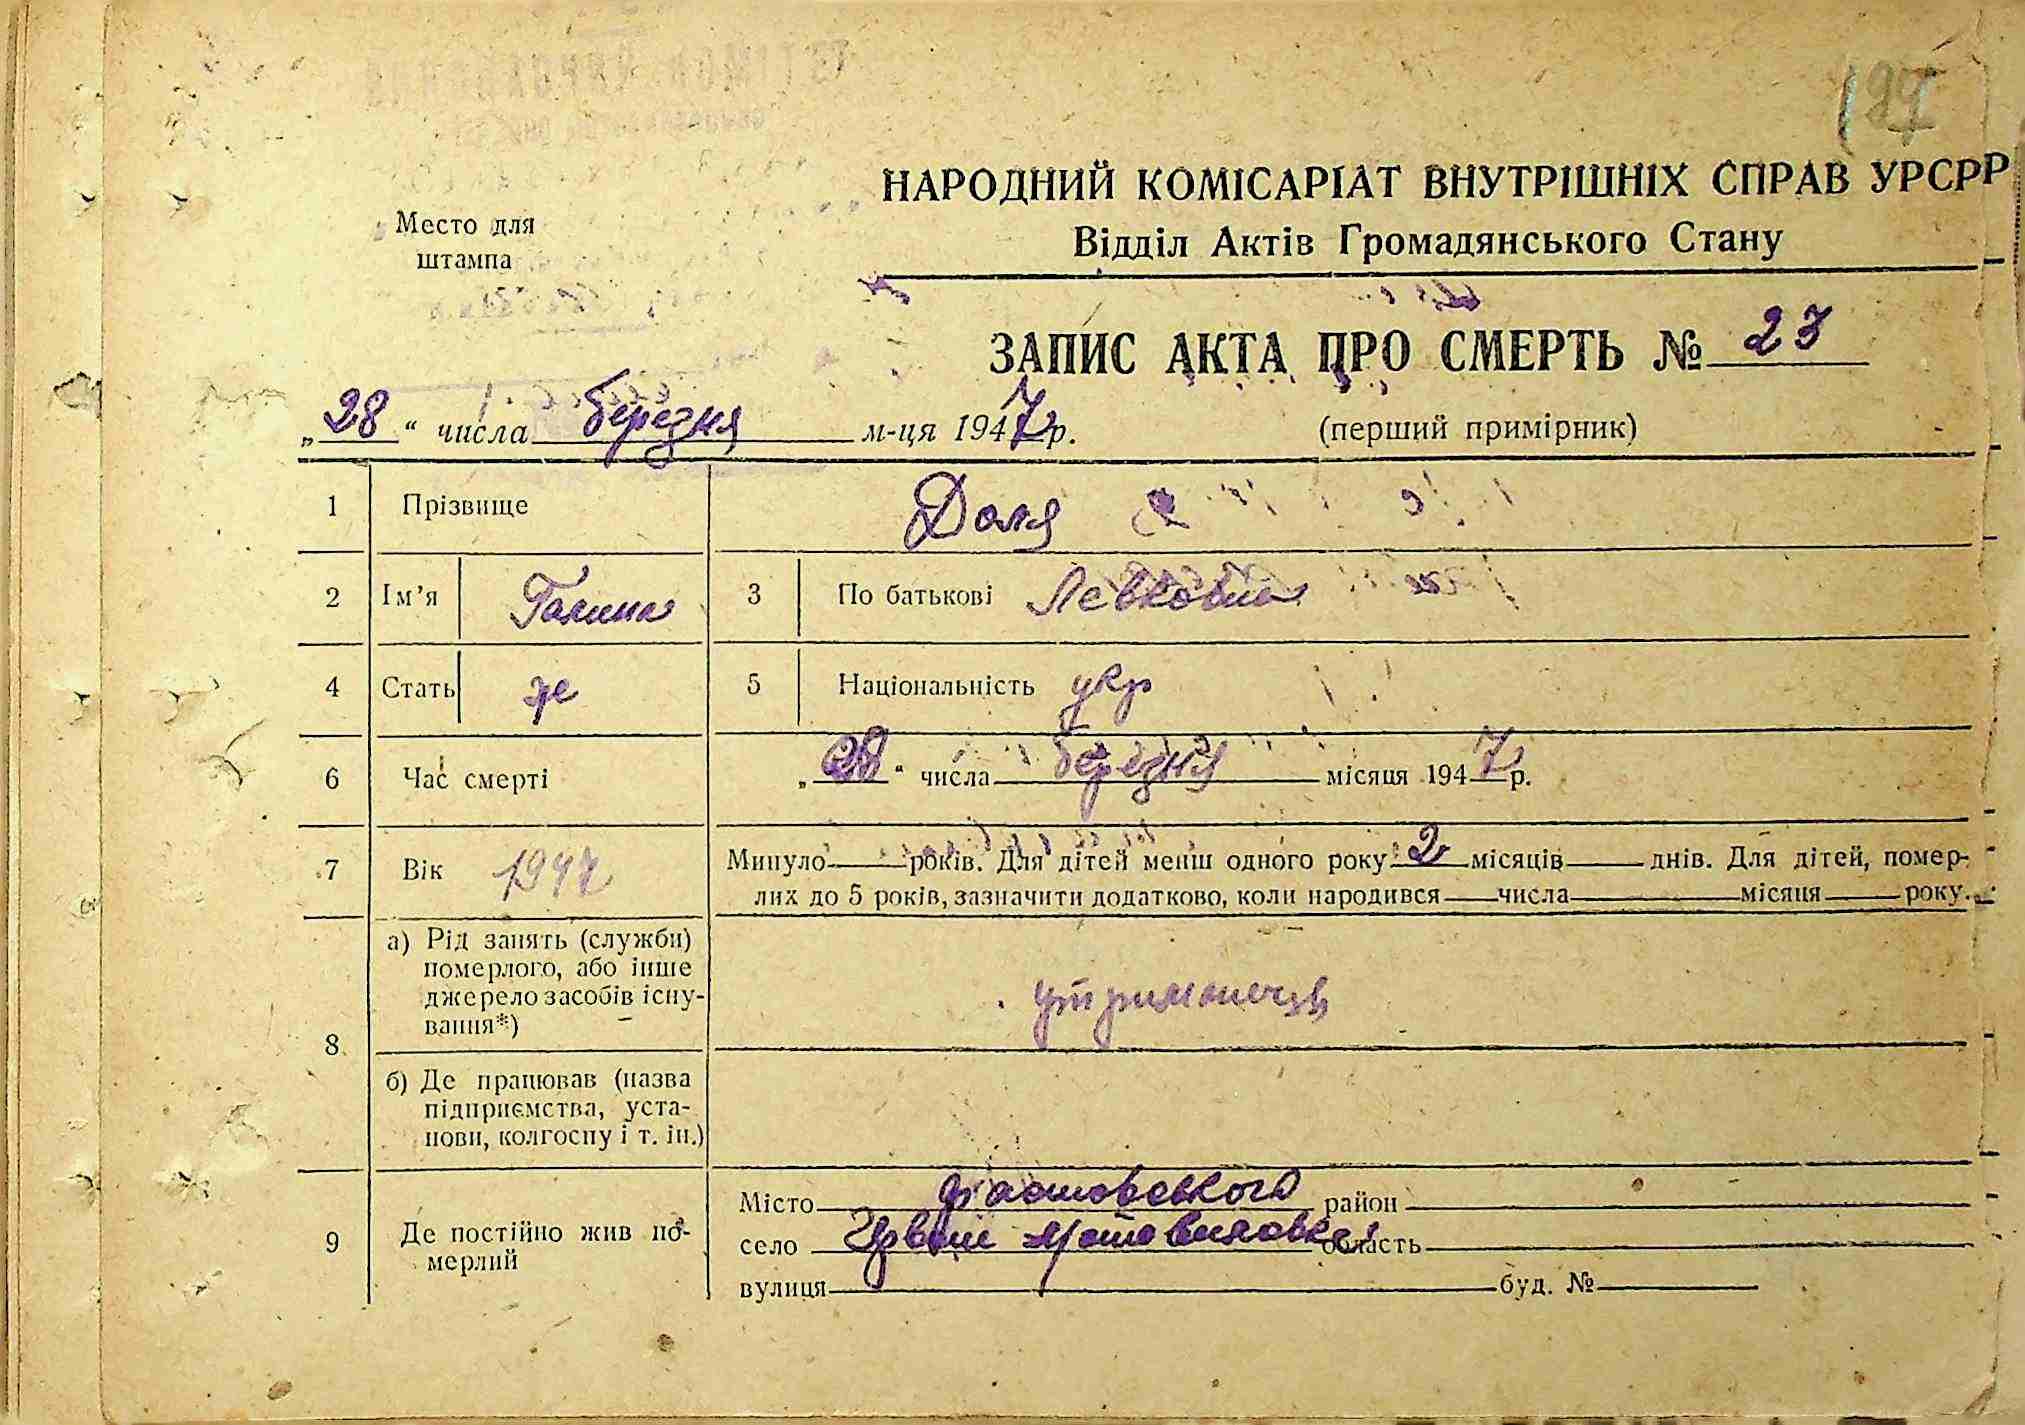 НАРОДНИЙ КОМІСАРІАТ ВНУТРІШНІХ СПРАВ УРСРР
Відділ Актів Громадянського Стану
Место для
штампа
ЗАПИС АКТА ПРО СМЕРТЬ № 23
„28“ числа березня м-ця 1947 р.
(перший примірник)
1 Прізвище Доля
2 Ім’я Галина 3 По батькові Левковна
4 Стать ж 5 Національність укр
6 Час смерті „28“ числа березня місяця 1947 р.
7 Вік 1947 Минуло року років. Для дітей менш одного року 2 місяців днів. Для дітей, помер-
лих до 5 років, зазначити додатково, коли народився числа місяця року.
8 а) Рід занять (служби)
померлого, або інше
джерело засобів існу-
вання*)
утриманець
б) Де працював (назва
підприємства, уста-
нови, колгоспу і т. ін.)
9 Де постійно жив по-
мерлий
Місто Фастовського район
село Мотовиловка область
вулиця буд. №